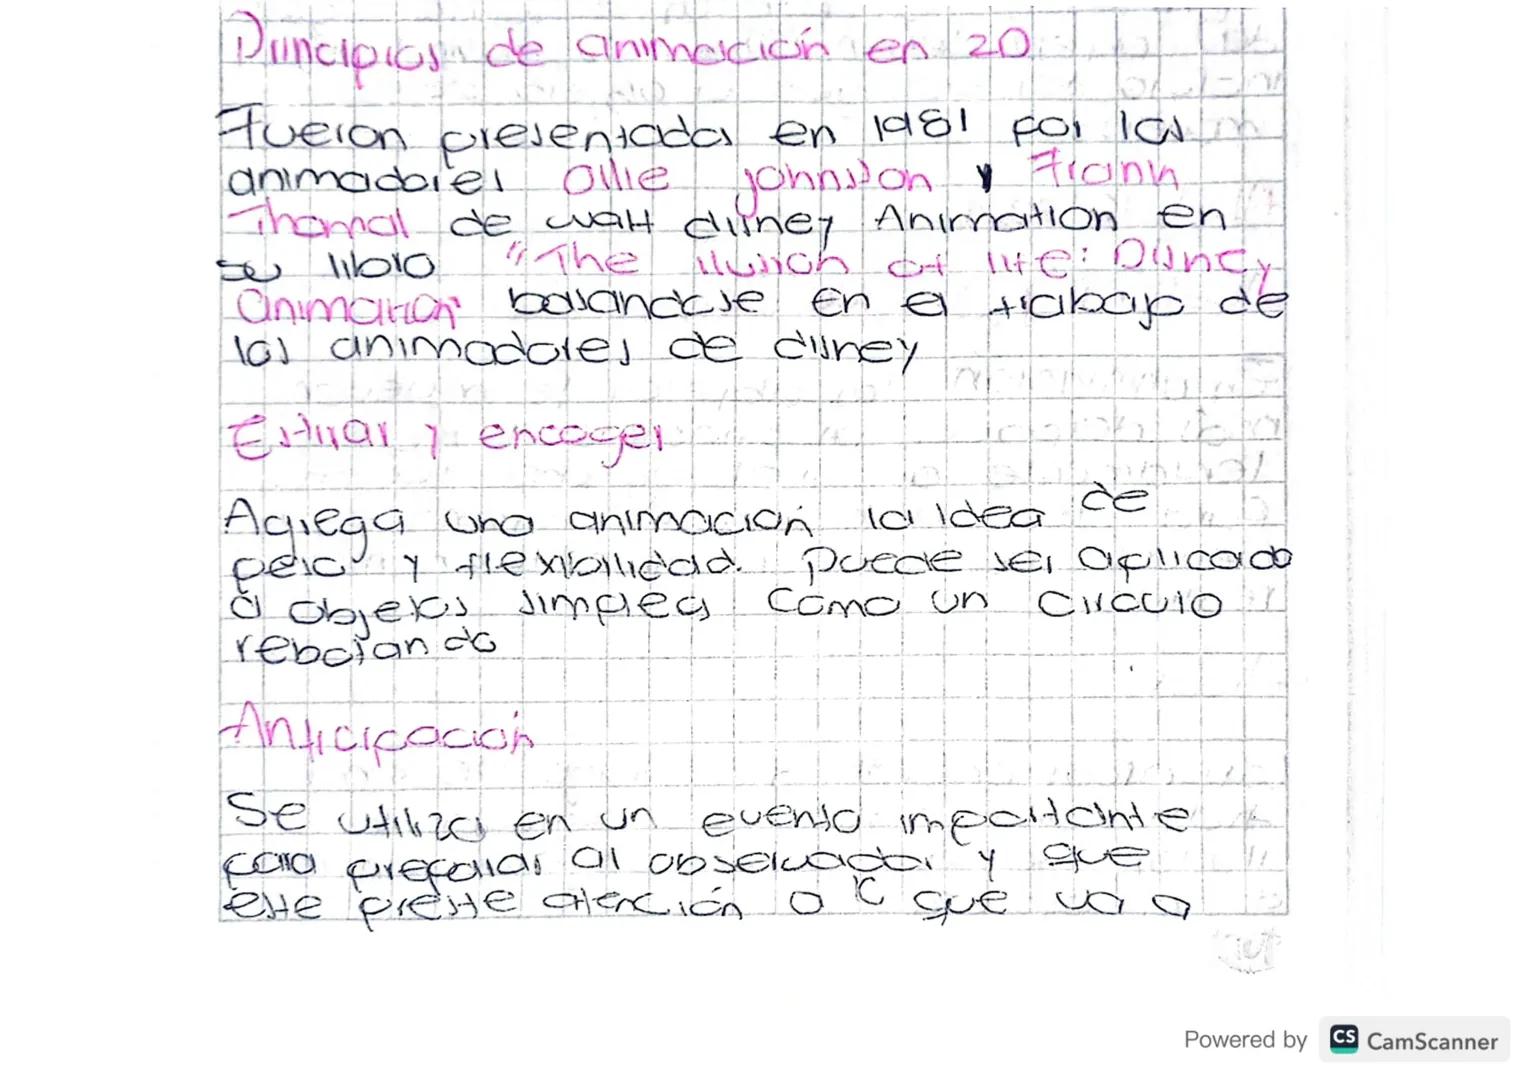 Principios de animación en 2D
Fueron presentados en 1981 por los
animadores Ollie Johnston y Frank
Thomas de Walt disney Animation en
su libro "The illusion of life: Disney
animation" basandose en el trabajo de
los animadores de disney
Estirar y encoger
Agrega una animación la idea de
peso y flexibilidad. Puede ser aplicado
a objetos simples como un circulo
rebotando
Anticipación
Se utiliza en un evento importante
para preparar al observador y que
este preste atención a lo que va a
Powered by CS CamScanner